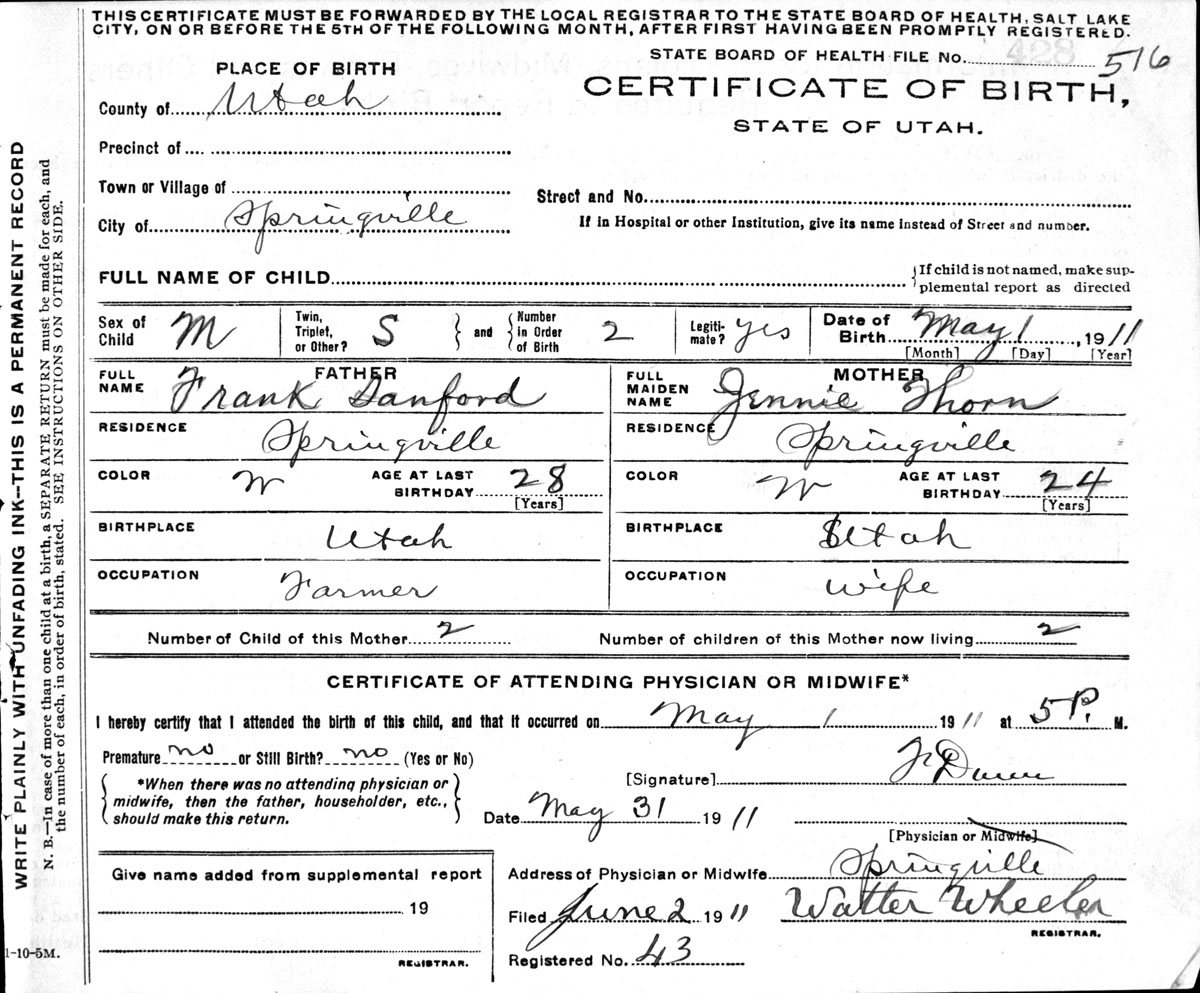 THIS CERTIFICATE MUST BE FORWARDED BY THE LOCAL REGISTRAR TO THE STATE BOARD OF HEALTH, SALT LAKE
CITY, ON OR BEFORE THE 5TH OF THE FOLLOWING MONTH, AFTER FIRST HAVING BEEN PROMPTLY REGISTERED.
STATE BOARD OF HEALTH FILE No. 516
PLACE OF BIRTH
CERTIFICATE OF BIRTH,
STATE OF UTAH.
County of Utah
Precinct of
Town or Village of
Street and No.
City of Springville
If in Hospital or other Institution, give its name instead of Street and number.
FULL NAME OF CHILD
If child is not named, make sup-
plemental report as directed
Sex of Child M
Twin, Triplet, or Other? S and Number in Order of Birth 2
Legiti-mate? yes
Date of Birth May 1, 1911
[Month] [Day] [Year]
FATHER
FULL NAME Frank Sanford
MOTHER
FULL MAIDEN NAME Jennie Thorn
RESIDENCE Springville
RESIDENCE Springville
COLOR W AGE AT LAST BIRTHDAY 28 [Years]
COLOR W AGE AT LAST BIRTHDAY 24 [Years]
BIRTHPLACE Utah
BIRTHPLACE Utah
OCCUPATION Farmer
OCCUPATION wife
Number of Child of this Mother 2 Number of children of this Mother now living 2
CERTIFICATE OF ATTENDING PHYSICIAN OR MIDWIFE*
I hereby certify that I attended the birth of this child, and that it occurred on May 1 1911 at 5 P. M.
Premature no or Still Birth? no (Yes or No)
*When there was no attending physician or
midwife, then the father, householder, etc.,
should make this return.
[Signature] Dunn
Date May 31 1911
[Physician or Midwife]
Address of Physician or Midwife Springville
Filed June 2 1911 Walter Wheeler
REGISTRAR.
Registered No. 43
Give name added from supplemental report
19
REGISTRAR.
1-10-5M.
WRITE PLAINLY WITH UNFADING INK—THIS IS A PERMANENT RECORD
N. B.—In case of more than one child at a birth, a SEPARATE RETURN must be made for each, and
the number of each, in order of birth, stated. SEE INSTRUCTIONS ON OTHER SIDE.